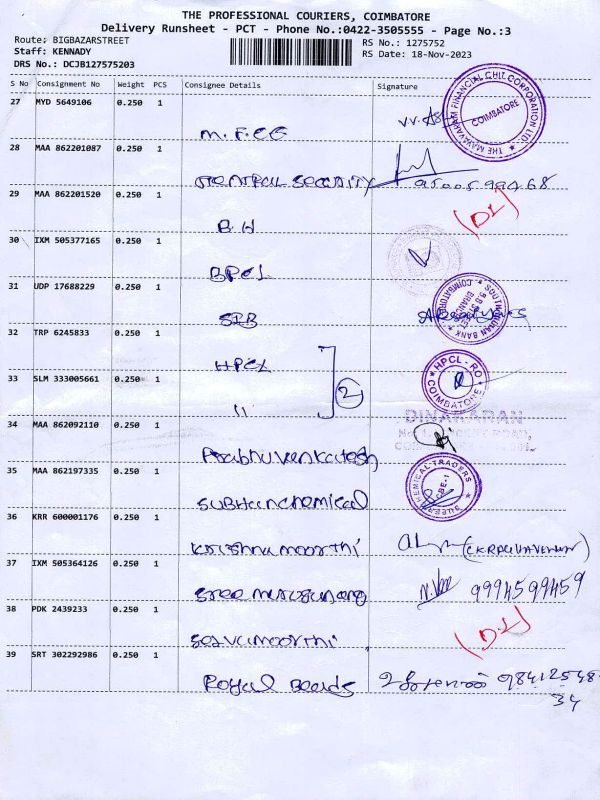 THE PROFESSIONAL COURIERS, COIMBATORE
Delivery Runsheet - PCT - Phone No.:0422-3505555 - Page No.:3
Route: BIGBAZARSTREET RS No.: 1275752
Staff: KENNADY RS Date: 18-Nov-2023
DRS No.: DCJB127575203
S No Consignment No Weight PCS Consignee Details Signature
27 MYD 5649106 0.250 1
THE MAYAVARAM FINANCIAL CHIT CORPORATION LTD. COIMBATORE
28 MAA 862201087 0.250 1
SECURITY
29 MAA 862201520 0.250 1
(DL)
B.H
30 IXM 505377165 0.250 1
BPCL
31 UDP 17688229 0.250 1
SOUTH INDIAN BANK COIMBATORE
SIB
32 TRP 6245833 0.250 1
HPCL
HPCL - RO COIMBATORE
33 SLM 333005661 0.250 1
2
"
DINAKARAN
34 MAA 862092110 0.250 1
Prabhu venkatesh
35 MAA 862197335 0.250 1
CHEMICAL TRADERS CBE-1
SUBHamchemical
36 KRR 600001176 0.250 1
Krishna moorthi
37 IXM 505364126 0.250 1
9994599459
Sree murugan
38 PDK 2439233 0.250 1
(DL)
Selvamoorthi
39 SRT 302292986 0.250 1
Royal Boards 98412548
34